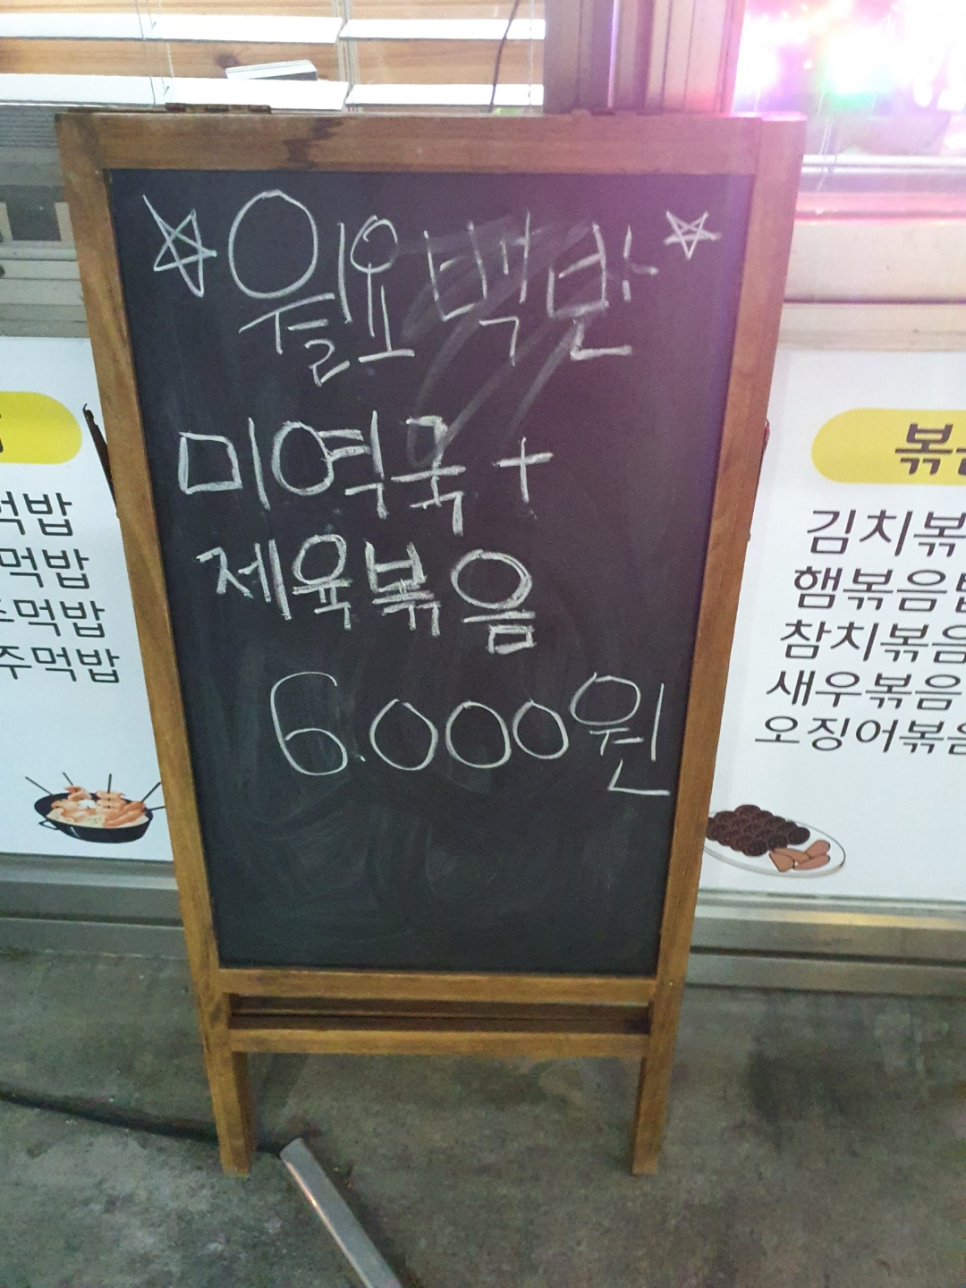 ☆월요백반☆
미역국 +
제육볶음
6.000원
먹밥
먹밥
주먹밥
주먹밥
김치볶
햄볶음
참치볶음
새우볶음
오징어볶음